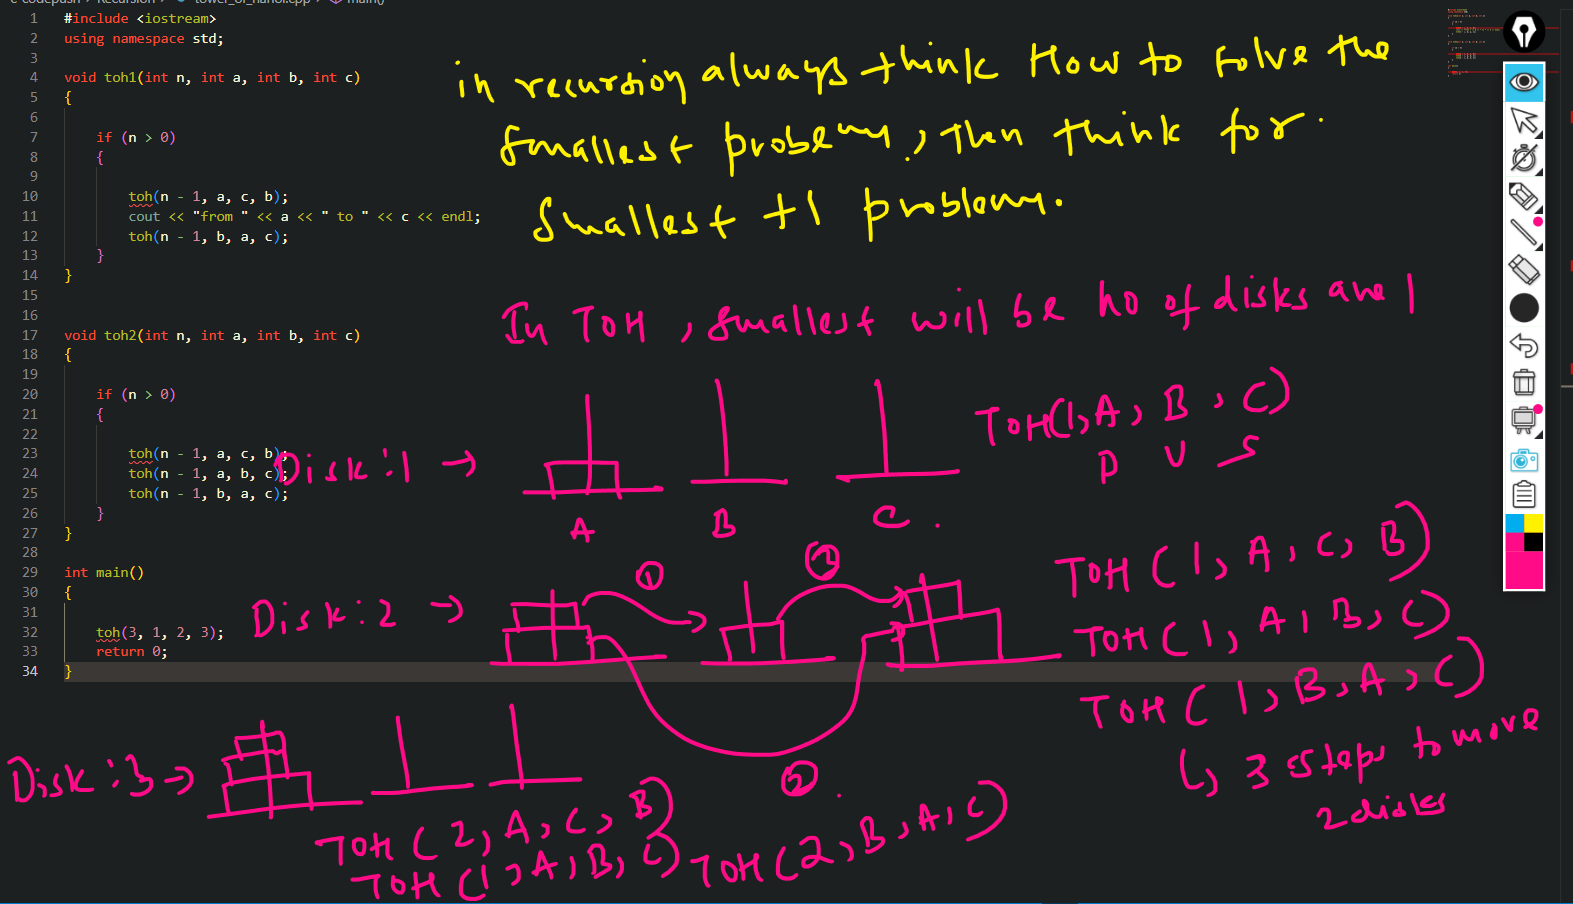 1 #include <iostream>
2 using namespace std;
3
4 void toh1(int n, int a, int b, int c)
5 {
6
7 if (n > 0)
8 {
9
10 toh(n - 1, a, c, b);
11 cout << "from " << a << " to " << c << endl;
12 toh(n - 1, b, a, c);
13 }
14 }
15
16
17 void toh2(int n, int a, int b, int c)
18 {
19
20 if (n > 0)
21 {
22
23 toh(n - 1, a, c, b);
24 toh(n - 1, a, b, c);
25 toh(n - 1, b, a, c);
26 }
27 }
28
29 int main()
30 {
31
32 toh(3, 1, 2, 3);
33 return 0;
34 }
in recursion always think How to solve the
smallest problem, then think for.
smallest +1 problem.
In TOH, smallest will be no of disks are 1
Disk:1 →
A
B
C.
TOH(1,A,B,C)
D U S
Disk:2 →
1
3
2
TOH(1,A,C,B)
TOH(1,A,B,C)
TOH(1,B,A,C)
↳ 3 steps to move
2 disks
Disk:3 →
TOH(2,A,C,B)
TOH(1,A,B,C) TOH(2,B,A,C)